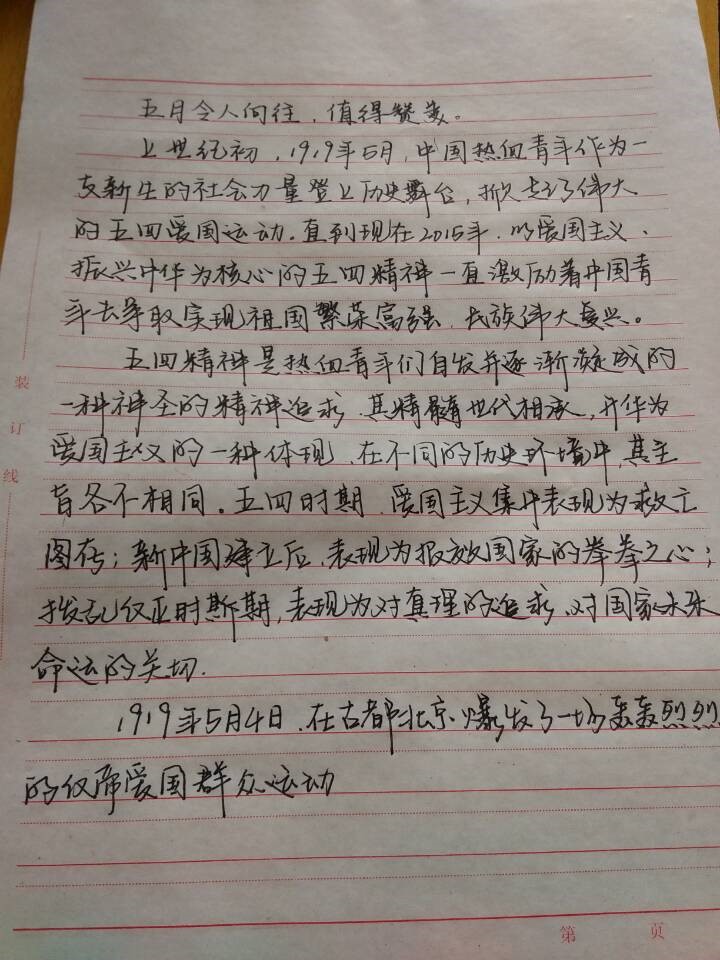 五月令人向往，值得赞美。
上世纪初，1919年5月，中国热血青年作为一
支新生的社会力量登上历史舞台，掀起了伟大
的五四爱国运动。直到现在2015年，以爱国主义、
振兴中华为核心的五四精神一直激励着中国青
年去争取实现祖国繁荣富强、民族伟大复兴。
五四精神是热血青年们自发并逐渐凝成的
一种神圣的精神追求，其精髓世代相承，升华为
爱国主义的一种体现，在不同的历史环境中，其主
旨各不相同。五四时期，爱国主义集中表现为救亡
图存；新中国建立后，表现为报效国家的拳拳之心；
拨乱反正时期，表现为对真理的追求、对国家未来
命运的关切.
1919年5月4日，在古都北京爆发了一场轰轰烈烈
的反帝爱国群众运动
装
订
线
第 页